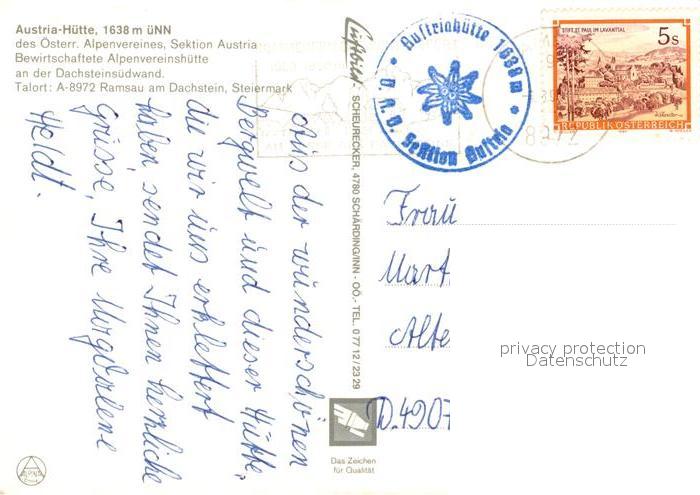 Austria-Hütte, 1638 m üNN
des Österr. Alpenvereines, Sektion Austria
Bewirtschaftete Alpenvereinshütte
an der Dachsteinsüdwand.
Talort: A-8972 Ramsau am Dachstein, Steiermark
Aus der wunderschönen
Bergwelt und dieser Hütte,
die wir uns erklettert
haben, sendet Ihnen herzliche
Grüsse, Ihre
Heldt.
Luftbild: SCHEURECKER, 4780 SCHÄRDING/INN - OÖ.- TEL. 0 77 12 / 23 29
Austriahütte 1638 m
Ö. A. V. Sektion Austria
STIFT ST. PAUL IM LAVANTTAL
5s
REPUBLIK ÖSTERREICH
8972
Frau
Mart
Alte
D. 4907
privacy protection
Datenschutz
Das Zeichen
für Qualität